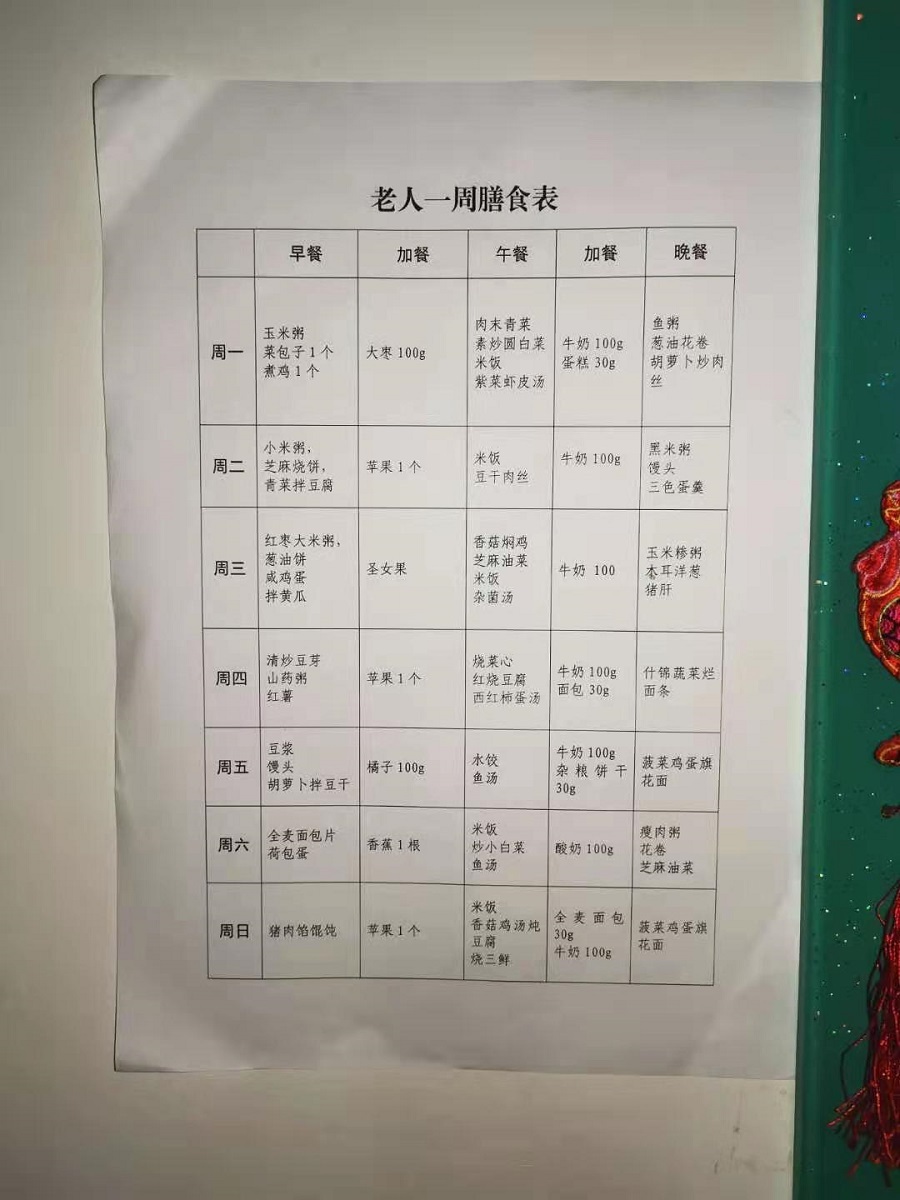 老人一周膳食表
早餐 加餐 午餐 加餐 晚餐
周一
玉米粥
菜包子1个
煮鸡1个
大枣100g
肉末青菜
素炒圆白菜
米饭
紫菜虾皮汤
牛奶100g
蛋糕30g
鱼粥
葱油花卷
胡萝卜炒肉
丝
周二
小米粥，
芝麻烧饼，
青菜拌豆腐
苹果1个
米饭
豆干肉丝
牛奶100g
黑米粥
馒头
三色蛋羹
周三
红枣大米粥，
葱油饼
咸鸡蛋
拌黄瓜
圣女果
香菇焖鸡
芝麻油菜
米饭
杂菌汤
牛奶 100
玉米糁粥
木耳洋葱
猪肝
周四
清炒豆芽
山药粥
红薯
苹果1个
烧菜心
红烧豆腐
西红柿蛋汤
牛奶100g
面包30g
什锦蔬菜烂
面条
周五
豆浆
馒头
胡萝卜拌豆干
橘子100g
水饺
鱼汤
牛奶100g
杂粮饼干
30g
菠菜鸡蛋旗
花面
周六
全麦面包片
荷包蛋
香蕉1根
米饭
炒小白菜
鱼汤
酸奶100g
瘦肉粥
花卷
芝麻油菜
周日
猪肉馅馄饨
苹果1个
米饭
香菇鸡汤炖
豆腐
烧三鲜
全麦面包
30g
牛奶100g
菠菜鸡蛋旗
花面